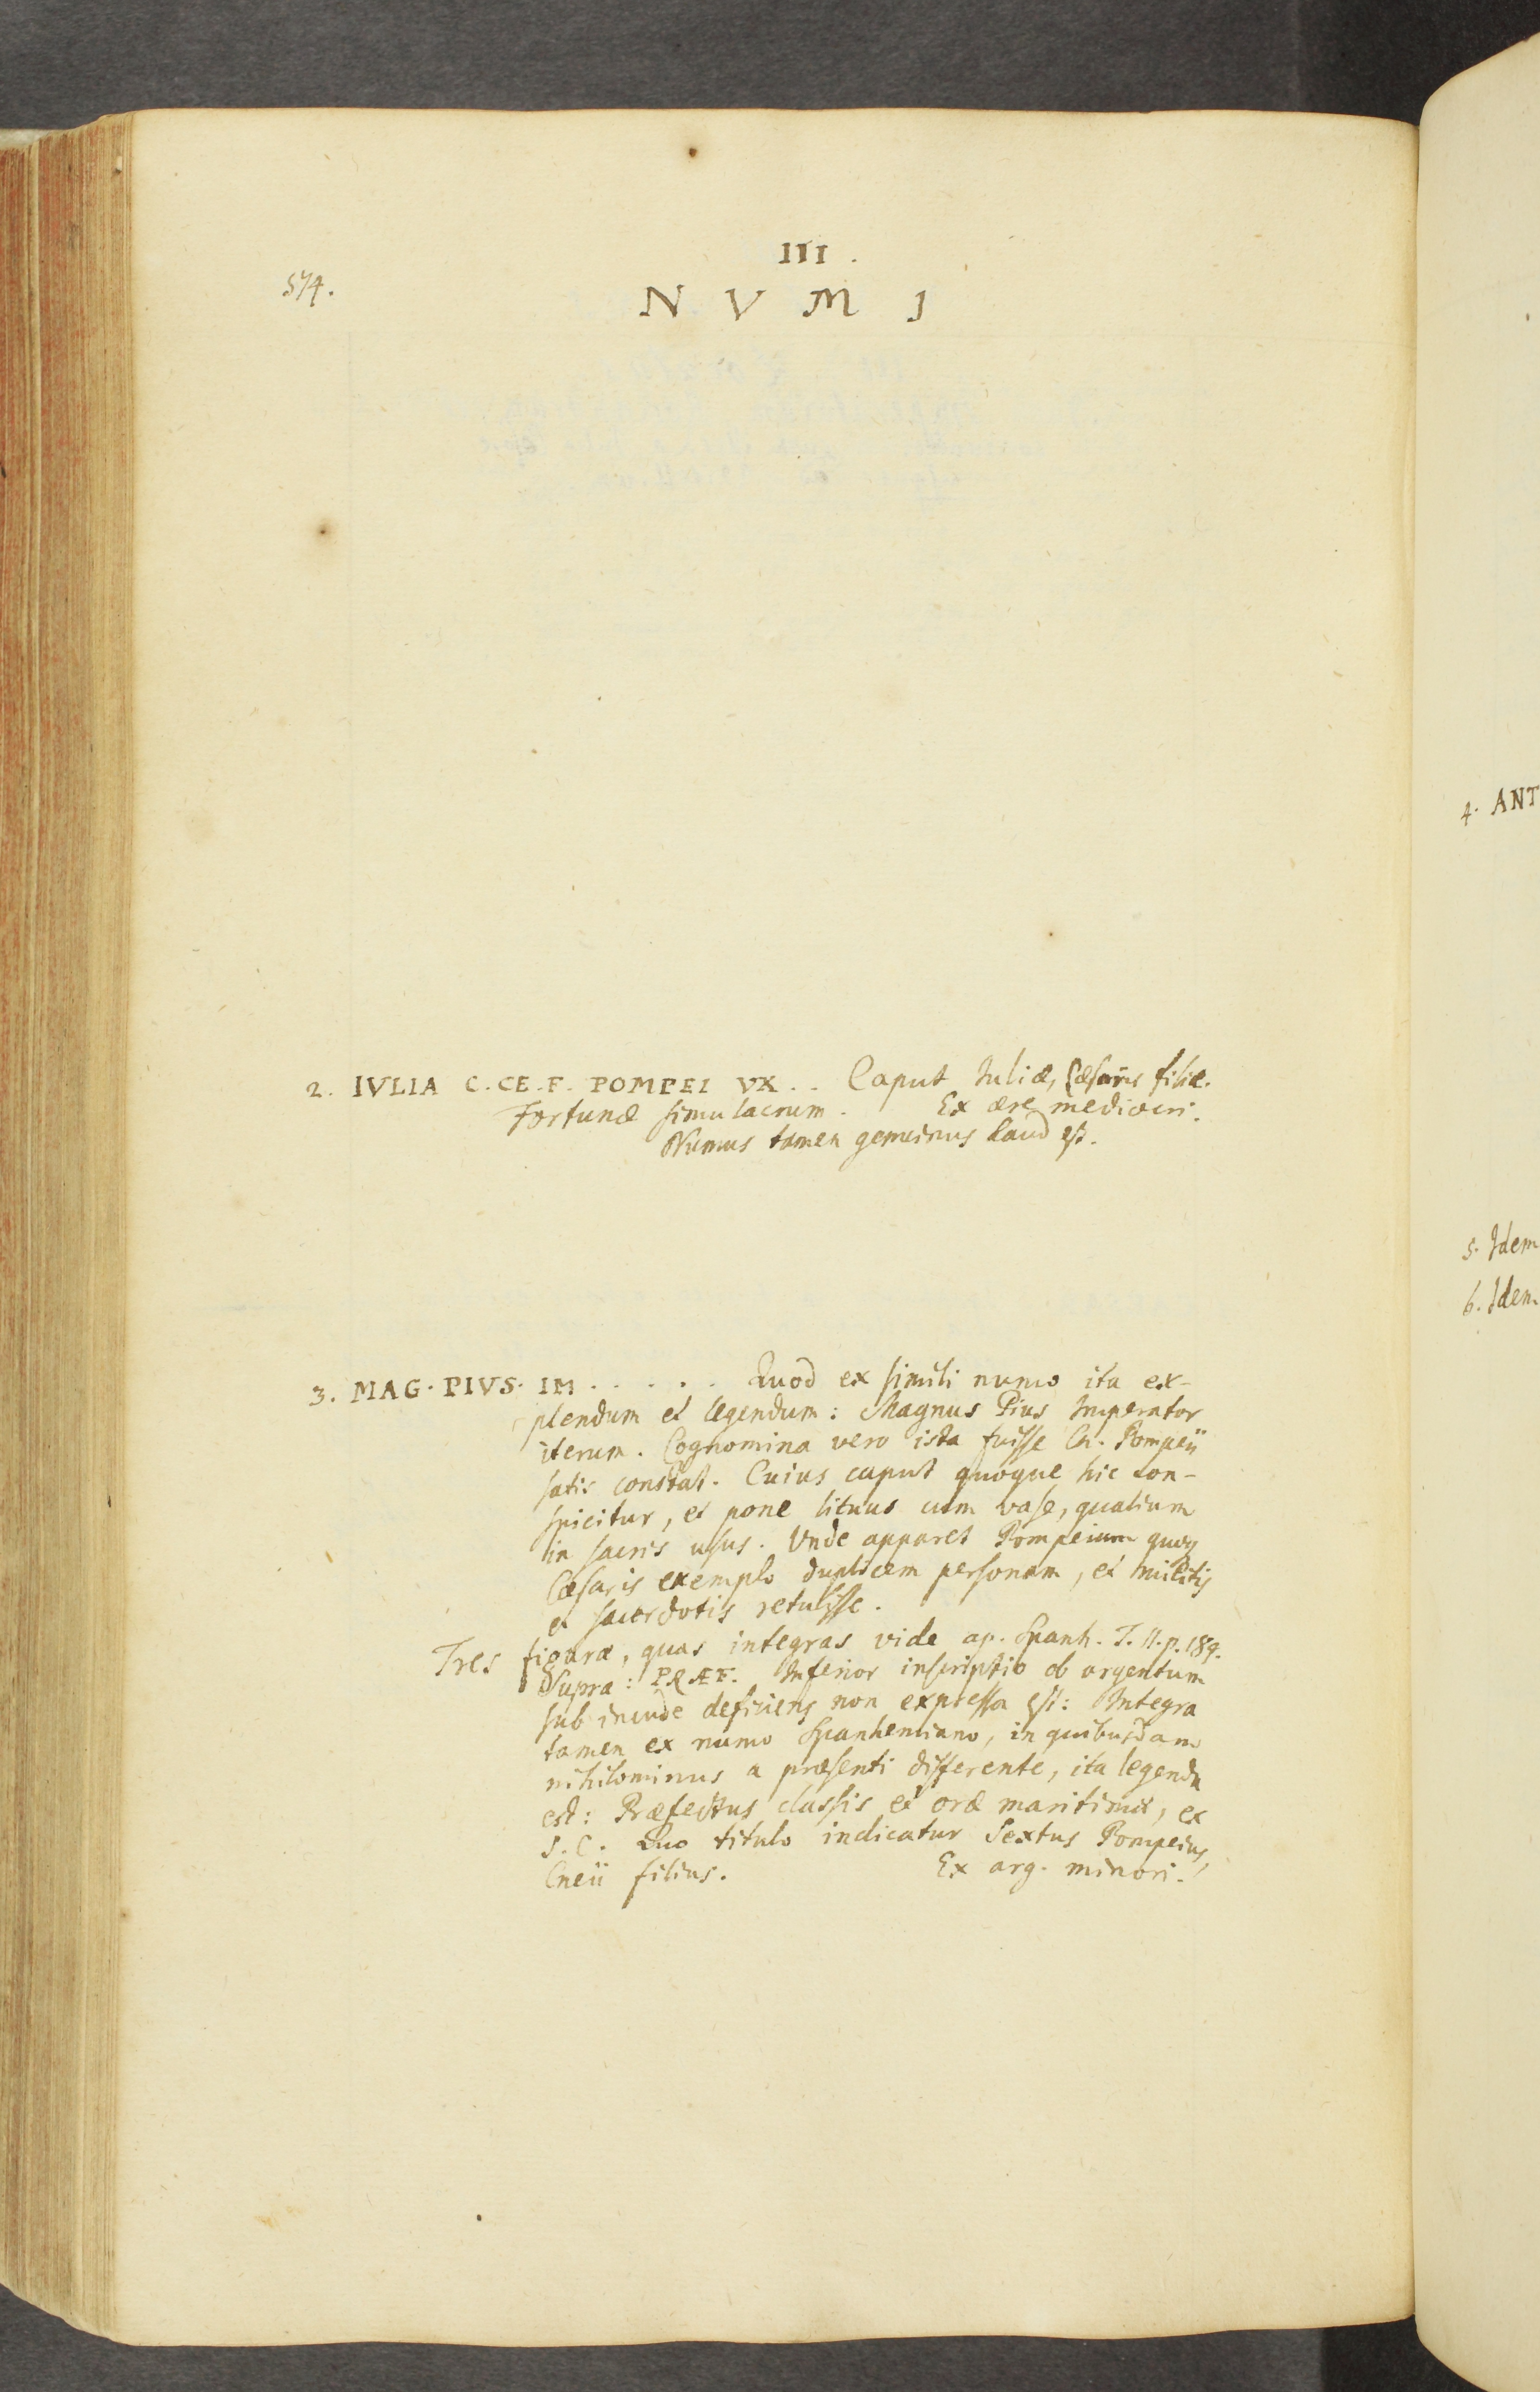 III.
574.
N V M I
2. IVLIA C. CE. F. POMPEI VX. .. Caput Iuliæ, Cæsaris filiæ.
Fortunæ simulacrum. Ex ære mediocri.
Numus tamen genuinus haud est.
3. MAG. PIVS. IM . . . . . Quod ex simili numo ita ex-
plendum et legendum: Magnus Pius Imperator
iterum. Cognomina vero ista fuisse Cn. Pompeii
satis constat. Cuius caput quoque hic con-
spicitur, et pone lituus cum vase, qualium
in sacris usus. Vnde apparet Pompeium quoq
Cæsaris exemplo duplicem personam, et militis
et sacerdotis retulisse.
Tres figuræ, quas integras vide ap. Spanh. T. II. p. 189.
Supra: PRÆF. Inferior inscriptio ob argentum
sub incude deficiens non expressa est: Integra
tamen ex numo Spanhemiano, in quibusdam
nihilominus a præsenti differente, ita legenda
est: Præfectus classis et oræ maritimæ, ex
S. C. Quo titulo indicatur Sextus Pompeius,
Cneii filius. Ex arg. minori.
4. ANT
5. Idem
6. Idem